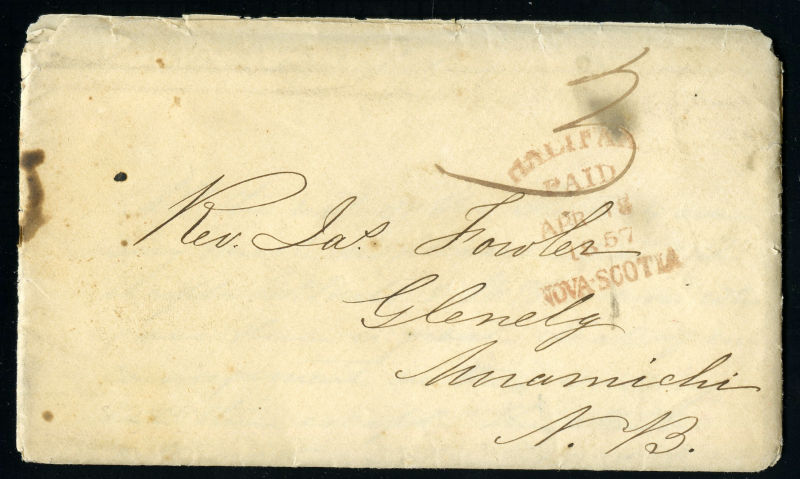 3
HALIFAX
PAID
APR 18
1857
NOVA·SCOTIA
Rev. Jas. Fowler
Glenelg
Miramichi
N. B.